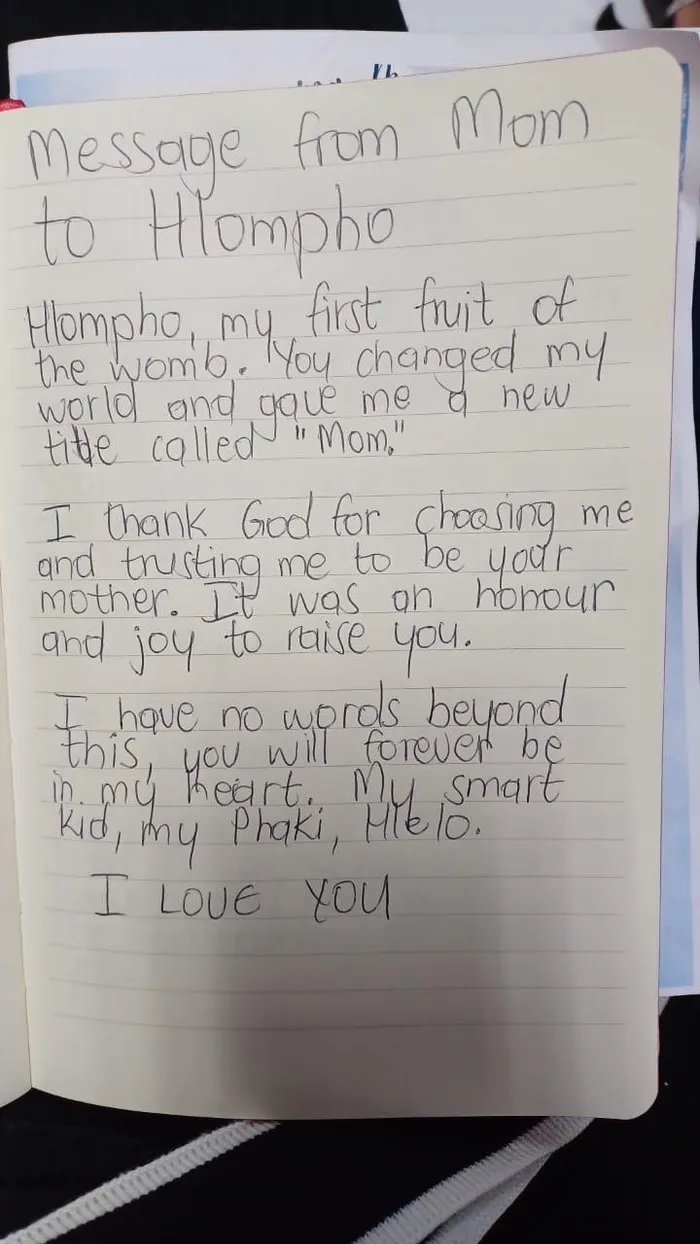 Message from Mom
to Hlompho
Hlompho, my first fruit of
the womb. You changed my
world and gave me a new
title called "Mom."
I thank God for choosing me
and trusting me to be your
mother. It was an honour
and joy to raise you.
I have no words beyond
this, you will forever be
in my heart. My smart
kid, my Phaki, Hlelo.
I LOVE YOU